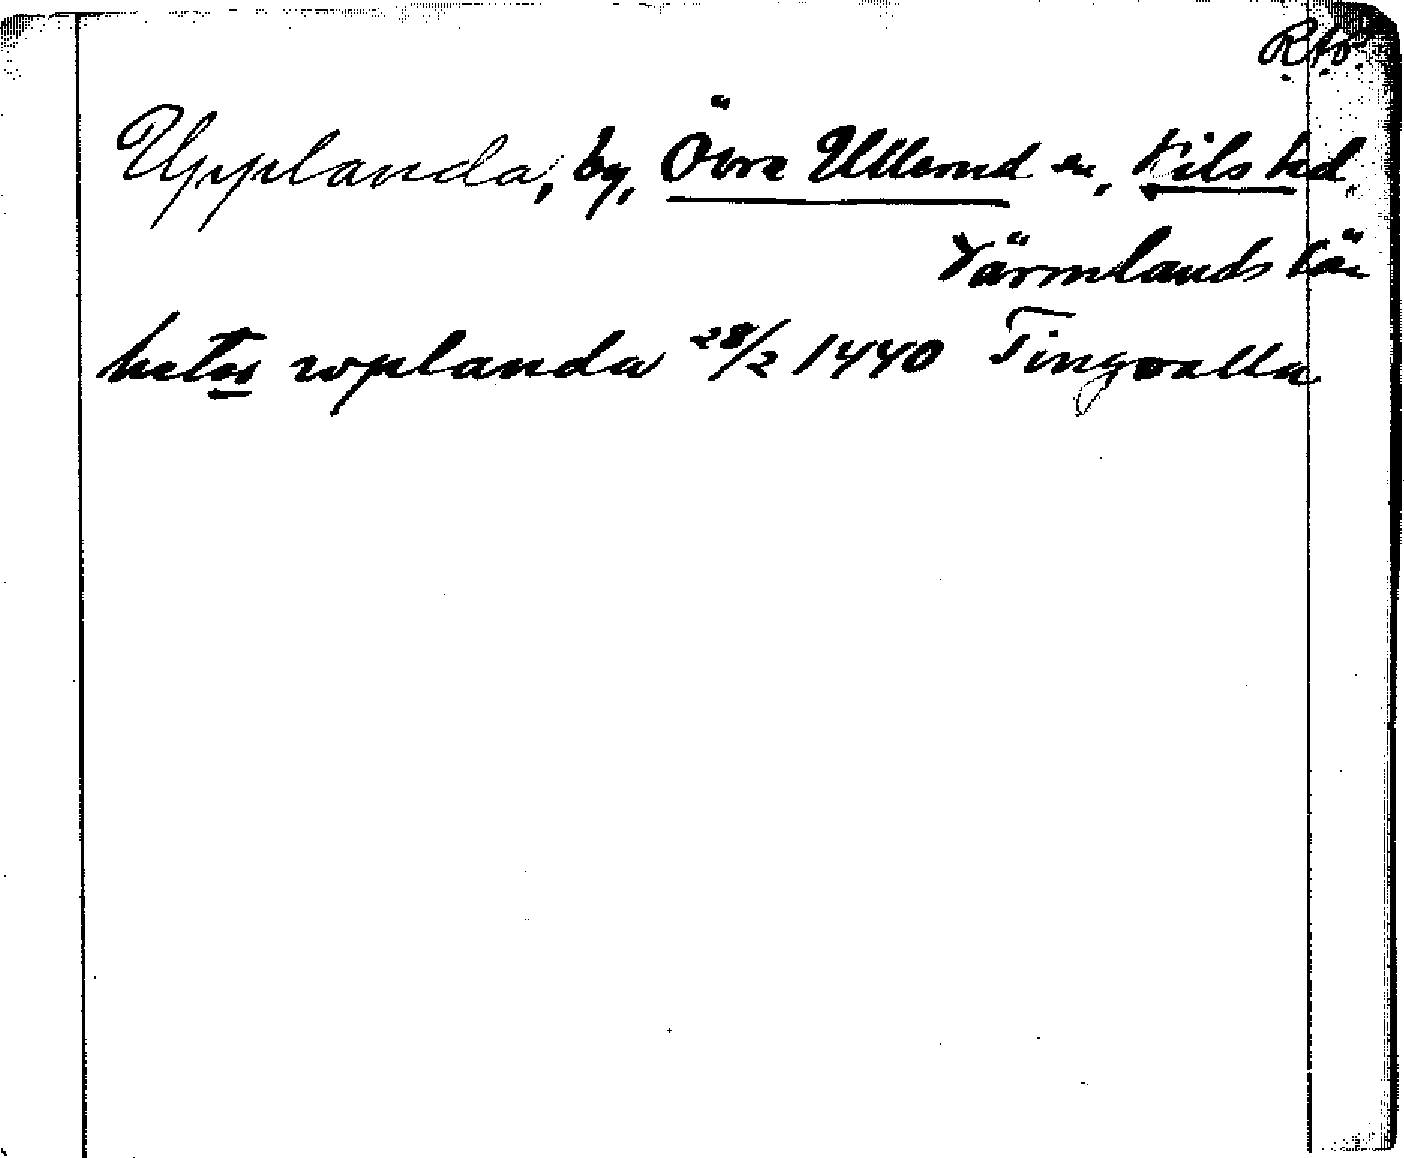 R.A.
Upplanda, by, Övre Ullerud sn, Kils hd,
Värmlands län
hetes wplanda 28/2 1440 Tingvalla